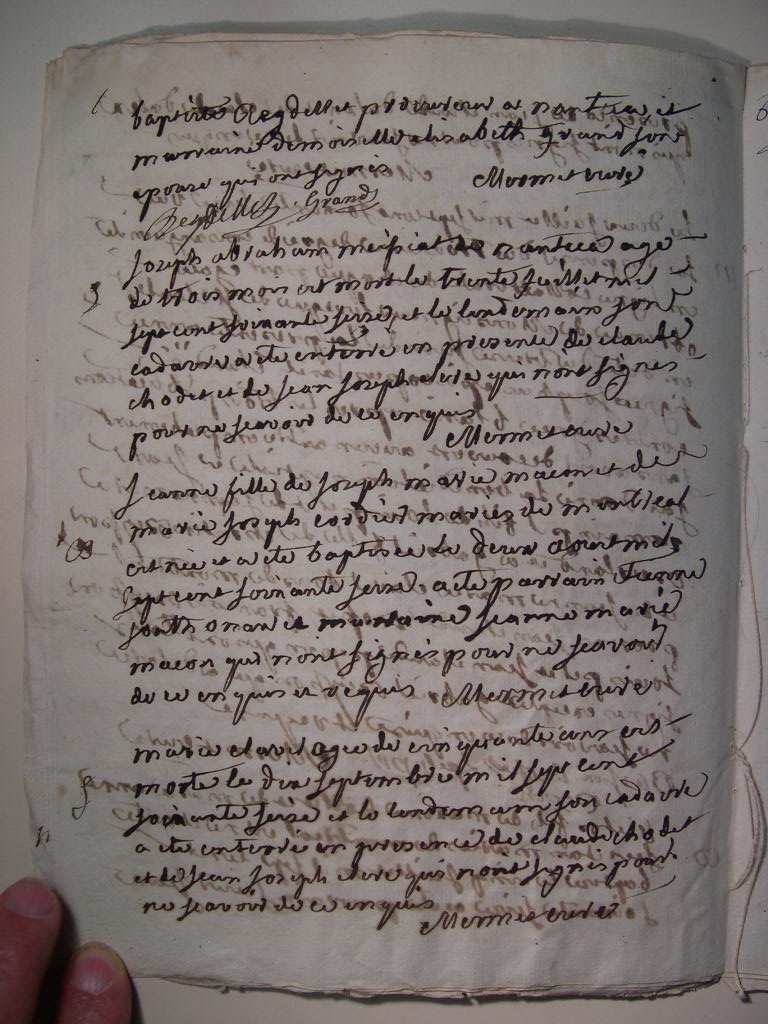 baptiste Reydellet procureur a nantua, et
marraine demoiselle elisabeth grand son
epouse qui ont signés Mermet curé
Reydellet Grand
joseph abraham de nantua agé
de trois mois est mort le trente juillet mil
sept cent soixante seize, et le lendemain son
cadavre a ete enterré en presence de claude
chodet et de jean joseph clere qui n'ont signes
pour ne sçavoir de ce enquis
Mermet curé
jeanne fille de joseph marie macon et de
marie joseph cordier mariés de montreal
est née et a ete baptisée le deux aoust mil
sept cent soixante seize. a ete parrain Etienne
jouthonax et marraine jeanne marie
macon qui n'ont signés pour ne sçavoir
de ce enquis et requis Mermet curé
marie clavel agée de cinquante ans est
morte le dix septembre mil sept cent
soixante seize et le lendemain son cadavre
a ete enterré en presence de claude chodet
et de jean joseph clere qui n'ont signés pour
ne sçavoir de ce enquis
Mermet curé